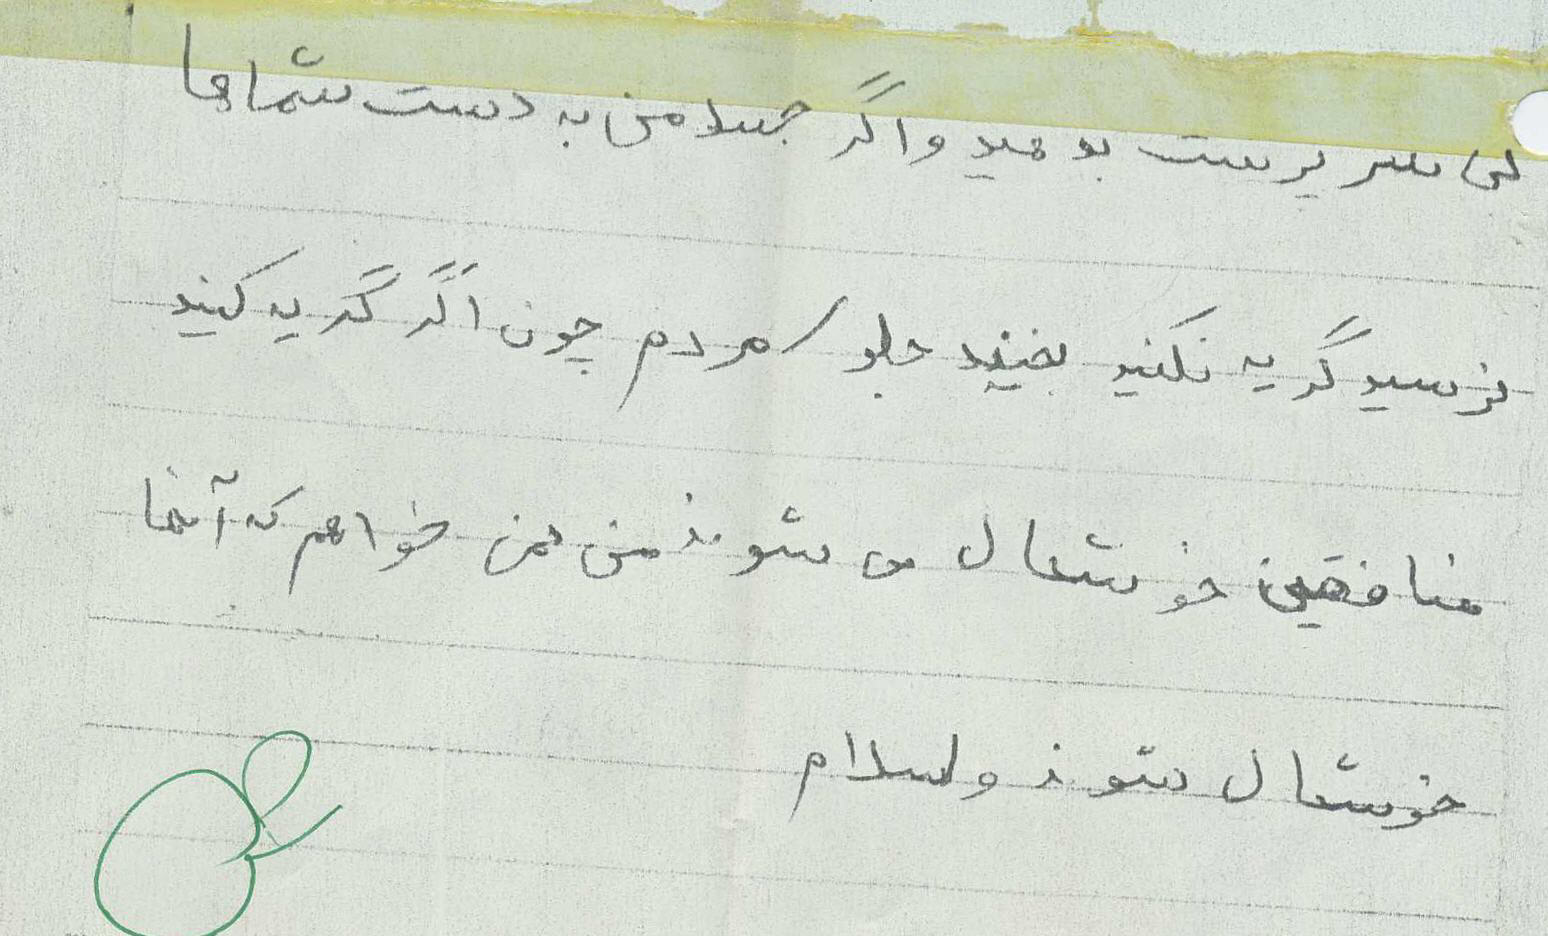 بی سرپرست بدهید و اگر جسد من به دست شماها
نرسید گریه نکنید بخندید جلو مردم چون اگر گریه کنید
منافقین خوشعال می شوند من نمی خواهم که آنها
خوشعال شوند ولسلام